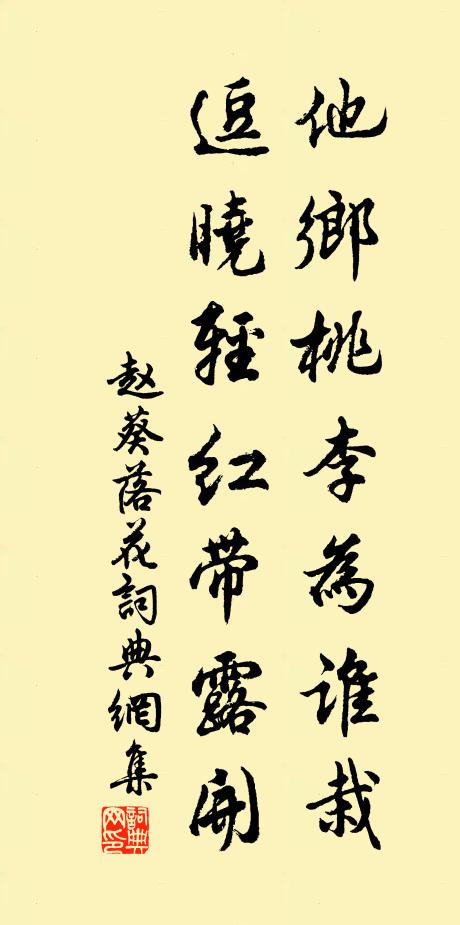 他鄉桃李為誰栽
逗曉輕红带露開
赵葵落花詞典網集
詞典网印